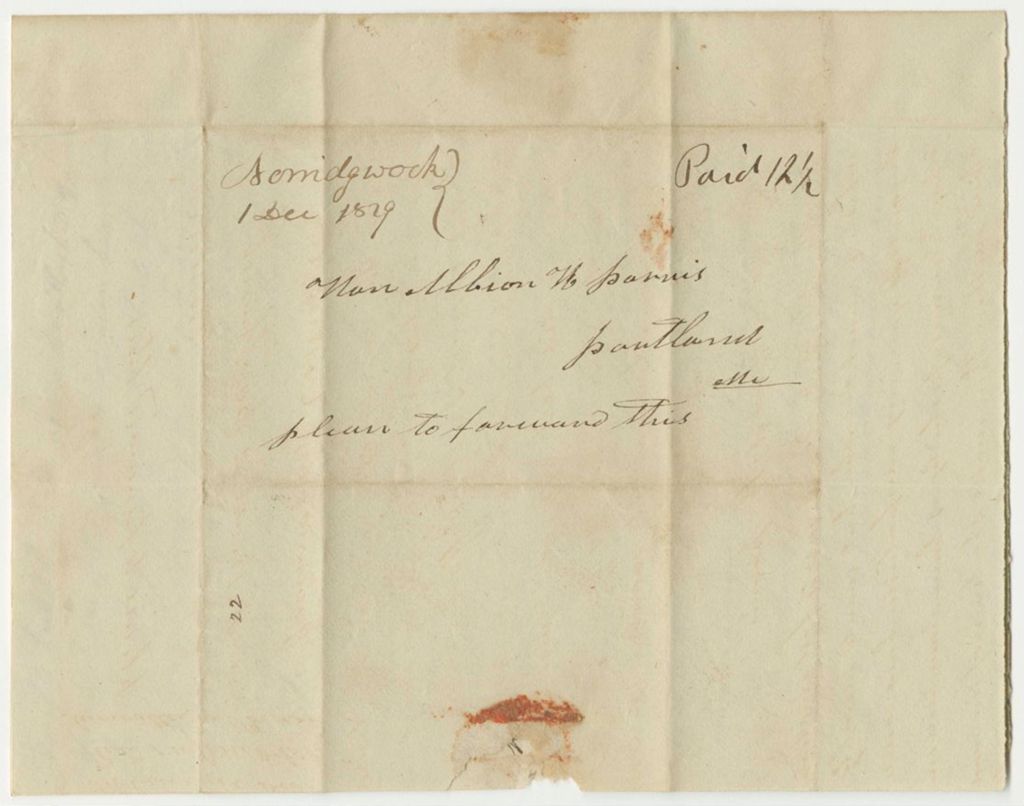 Norridgwock
1 Dec 1829
Paid 12 1/2
Hon Albion K Parris
Portland
Me
please to forward this
22